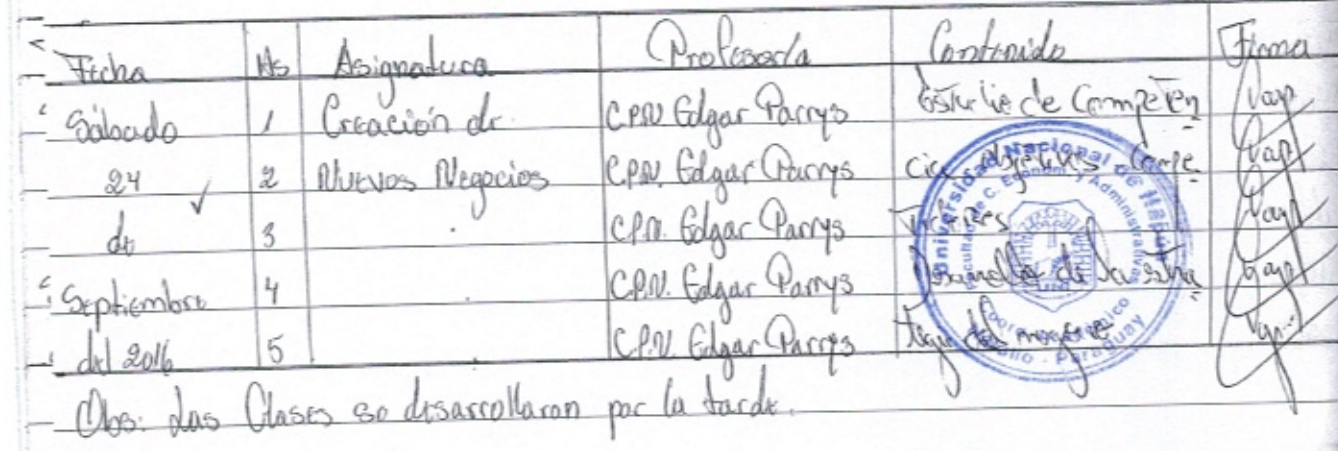 Fecha Hs Asignatura Profesor/a Contenido Firma
Sábado 1 Creación de C.P.N. Edgar Parrys Estudio de Competen
24 2 Nuevos Negocios C.P.N. Edgar Parrys cia Objetivos Compe
de 3 C.P.N. Edgar Parrys
Septiembre 4 C.P.N. Edgar Parrys de la Estra
del 2016 5 C.P.N. Edgar Parrys
Obs: Las Clases se desarrollaron por la tarde.
Universidad Nacional de Itapúa
Facultad de C. Económ y Administrativas
Paraguay